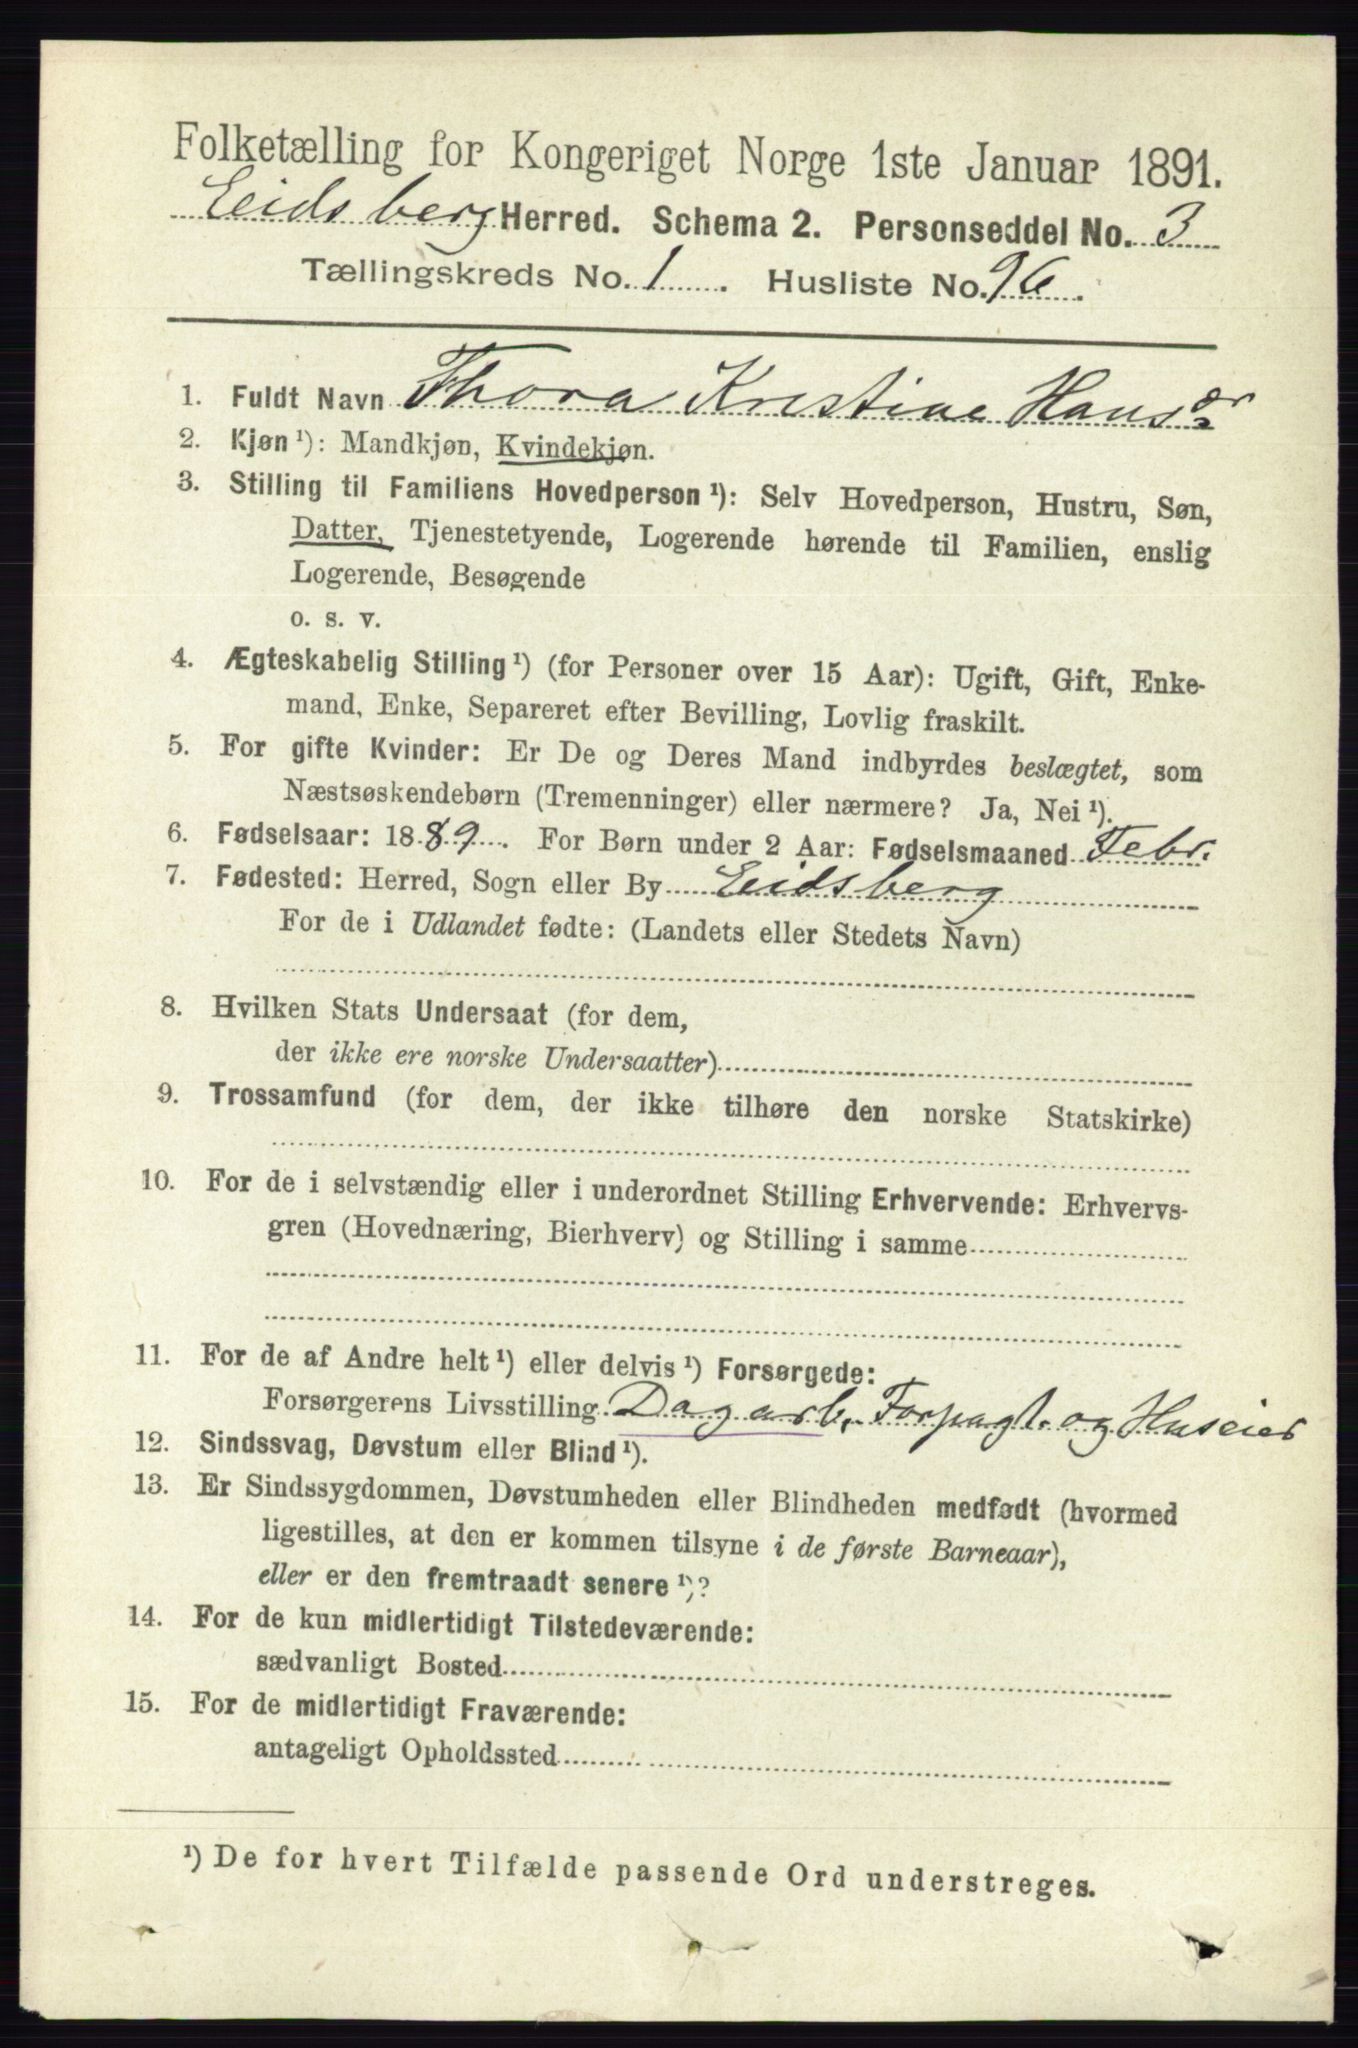 Folketælling for Kongeriget Norge 1ste Januar 1891.
Eidsberg Herred. Schema 2. Personseddel No. 3
Tællingskreds No. 1. Husliste No. 96.
1. Fuldt Navn Thora Kristine Hansdr
2. Kjøn ¹): Mandkjøn, Kvindekjøn.
3. Stilling til Familiens Hovedperson ¹): Selv Hovedperson, Hustru, Søn,
Datter, Tjenestetyende, Logerende hørende til Familien, enslig
Logerende, Besøgende
o. s. v.
4. Ægteskabelig Stilling ¹) (for Personer over 15 Aar): Ugift, Gift, Enke-
mand, Enke, Separeret efter Bevilling, Lovlig fraskilt.
5. For gifte Kvinder: Er De og Deres Mand indbyrdes beslægtet, som
Næstsøskendebørn (Tremenninger) eller nærmere? Ja, Nei ¹).
6. Fødselsaar: 1889. For Børn under 2 Aar: Fødselsmaaned Febr.
7. Fødested: Herred, Sogn eller By Eidsberg
For de i Udlandet fødte: (Landets eller Stedets Navn)
8. Hvilken Stats Undersaat (for dem,
der ikke ere norske Undersaatter)
9. Trossamfund (for dem, der ikke tilhøre den norske Statskirke)
10. For de i selvstændig eller i underordnet Stilling Erhvervende: Erhvervs-
gren (Hovednæring, Bierhverv) og Stilling i samme
11. For de af Andre helt ¹) eller delvis ¹) Forsørgede:
Forsørgerens Livsstilling Dagarb. Forpagt. og Huseier
12. Sindssvag, Døvstum eller Blind ¹).
13. Er Sindssygdommen, Døvstumheden eller Blindheden medfødt (hvormed
ligestilles, at den er kommen tilsyne i de første Barneaar),
eller er den fremtraadt senere ¹)?
14. For de kun midlertidigt Tilstedeværende:
sædvanligt Bosted
15. For de midlertidigt Fraværende:
antageligt Opholdssted
¹) De for hvert Tilfælde passende Ord understreges.